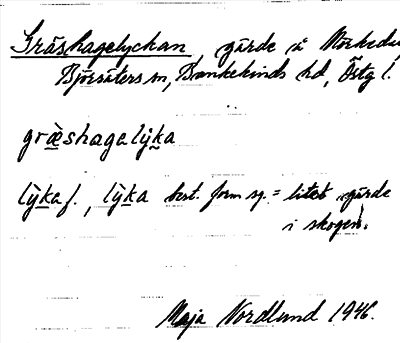 Gräshagelyckan, gärde å Mörkedal
Björsäters sn, Bankekinds hd, Östg l.
græshagalyka
lyka f., lyka best. form sg. = litet gärde
i skogen.
Maja Nordlund 1946.